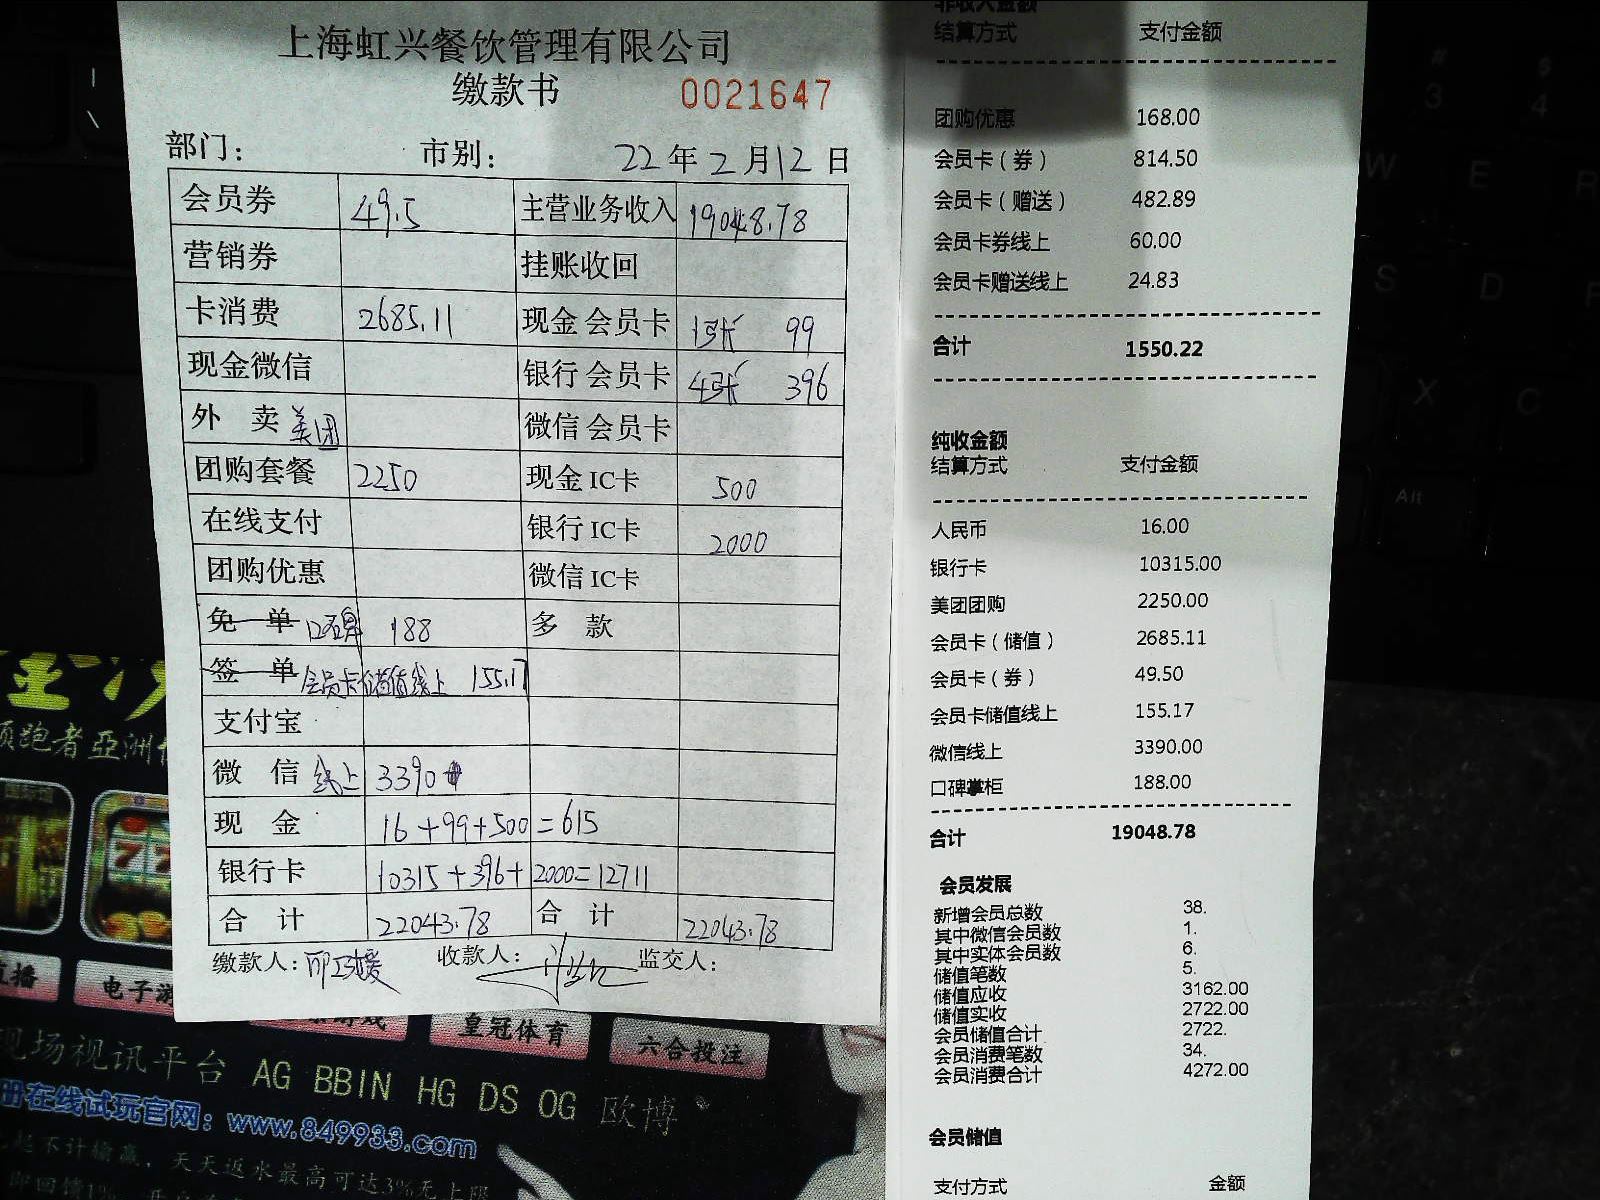 上海虹兴餐饮管理有限公司
缴款书 0021647
部门： 市别： 22年2月12日
会员券 49.5 主营业务收入 19048.78
营销券 挂账收回
卡消费 2685.11 现金会员卡 1张 99
现金微信 银行会员卡 4张 396
外卖 美团 微信会员卡
团购套餐 2250 现金IC卡 500
在线支付 银行IC卡 2000
团购优惠 微信IC卡
免单 口碑 188 多款
签单 会员卡储值线上 155.17
支付宝
微信 线上 3390
现金 16+99+500=615
银行卡 10315+396+2000=12711
合计 22043.78 合计 22043.78
缴款人： 收款人： 监交人：
非收入金额
结算方式 支付金额
团购优惠 168.00
会员卡（券） 814.50
会员卡（赠送） 482.89
会员卡券线上 60.00
会员卡赠送线上 24.83
合计 1550.22
纯收金额
结算方式 支付金额
人民币 16.00
银行卡 10315.00
美团团购 2250.00
会员卡（储值） 2685.11
会员卡（券） 49.50
会员卡储值线上 155.17
微信线上 3390.00
口碑掌柜 188.00
合计 19048.78
会员发展
新增会员总数 38.
其中微信会员数 1.
其中实体会员数 6.
储值笔数 5.
储值应收 3162.00
储值实收 2722.00
会员储值合计 2722.
会员消费笔数 34.
会员消费合计 4272.00
会员储值
支付方式 金额
领跑者 亞洲
电子游
皇冠体育
六合投注
现场视讯平台 AG BBIN HG DS OG 欧博
册在线试玩官网：www.849933.com
不计输赢，天天返水最高可达3%无上限
# 3 $ 4
W E R
S D F
X C
Alt